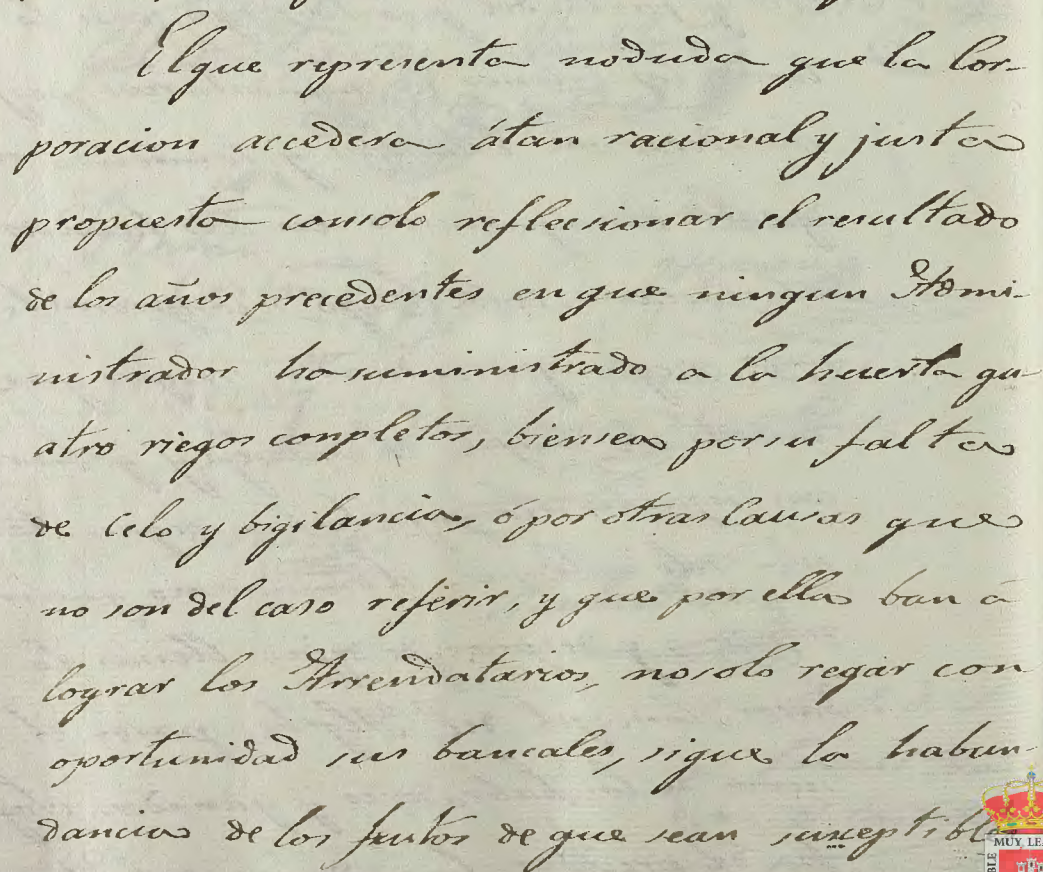 El que representa noduda que la Cor-
poracion accedera átan racional y justa
propuesta consolo reflecsionar el resultado
de los años precedentes en que ningun Admi-
nistrador ha suministrado a la huerta qu-
atro riegos conpletos, biensea porsu falta
de Celo y bigilancia, ó por otras Causas que
no son del caso referir, y que por ella ban á
lograr los Arrendatarios, nosolo regar con
oportunidad sus bancales, sigue la habun-
dancia de los frutos de que sean suceptibles
MUY LE
BLE